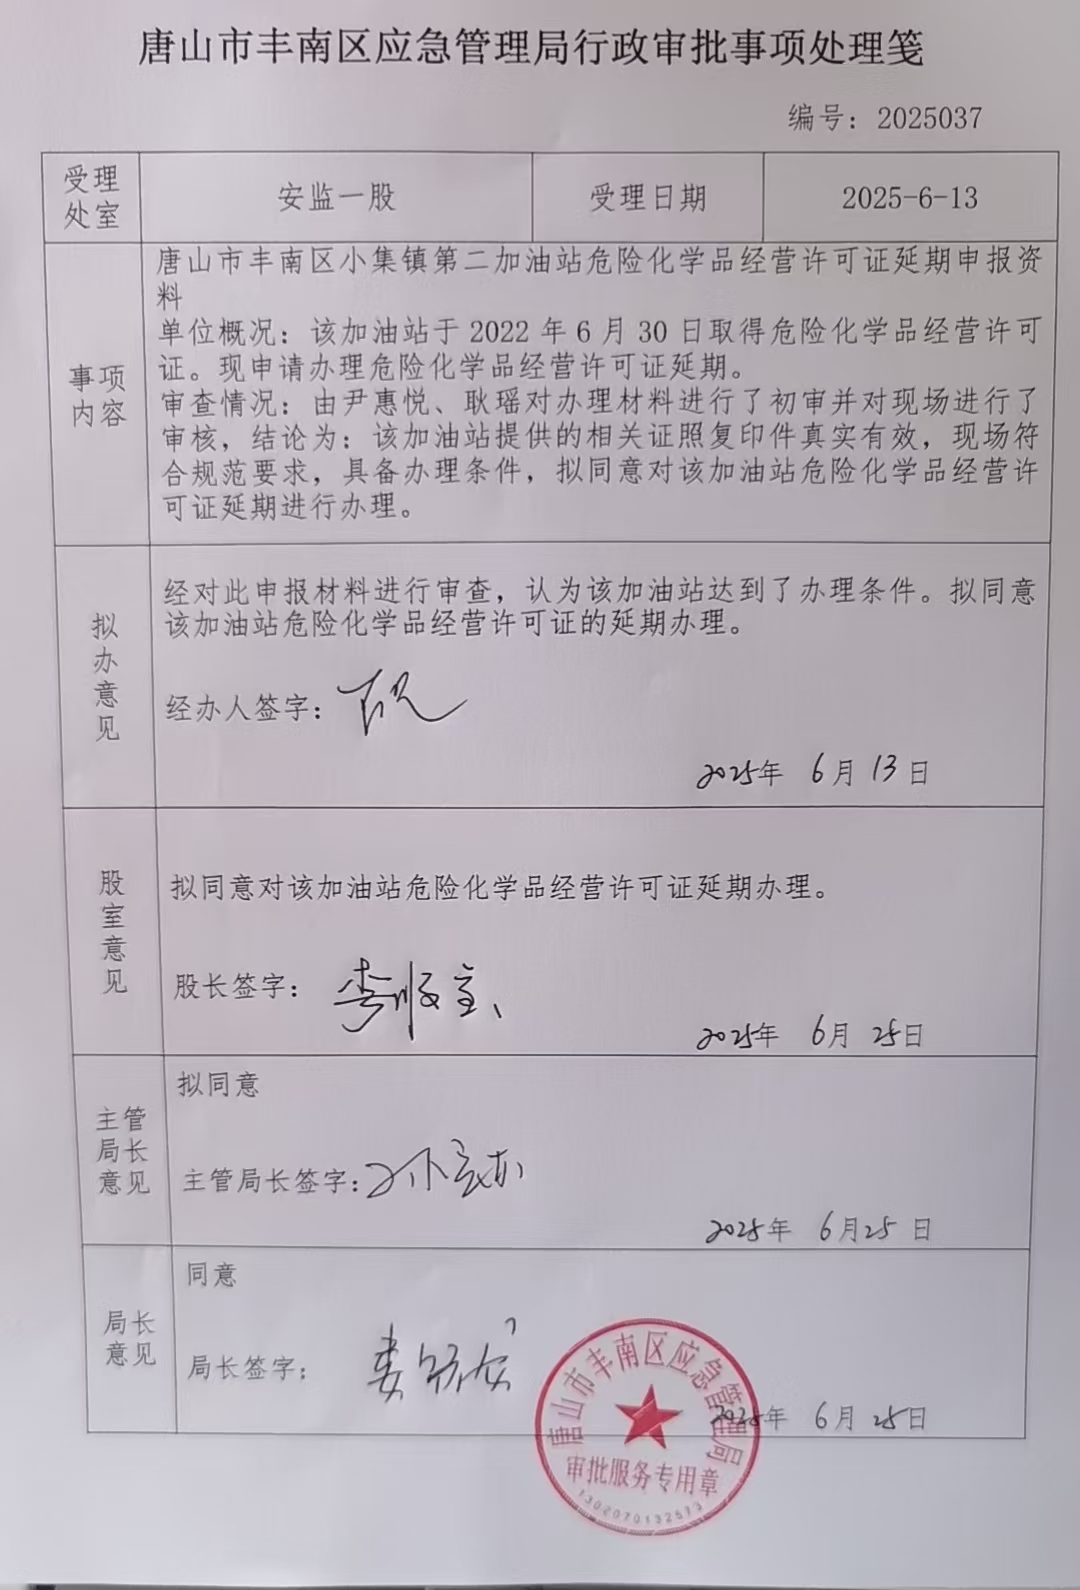 唐山市丰南区应急管理局行政审批事项处理笺
编号：2025037
受理
处室
安监一股
受理日期
2025-6-13
事项
内容
唐山市丰南区小集镇第二加油站危险化学品经营许可证延期申报资
料
单位概况：该加油站于 2022 年 6 月 30 日取得危险化学品经营许可
证。现申请办理危险化学品经营许可证延期。
审查情况：由尹惠悦、耿瑶对办理材料进行了初审并对现场进行了
审核，结论为：该加油站提供的相关证照复印件真实有效，现场符
合规范要求，具备办理条件，拟同意对该加油站危险化学品经营许
可证延期进行办理。
拟
办
意
见
经对此申报材料进行审查，认为该加油站达到了办理条件。拟同意
该加油站危险化学品经营许可证的延期办理。
经办人签字：
2025年 6月 13日
股
室
意
见
拟同意对该加油站危险化学品经营许可证延期办理。
股长签字：
2025年 6月 25日
主管
局长
意见
拟同意
主管局长签字：
2025年 6月25日
局长
意见
同意
局长签字：
2025年 6月 25日
唐山市丰南区应急管理局
审批服务专用章